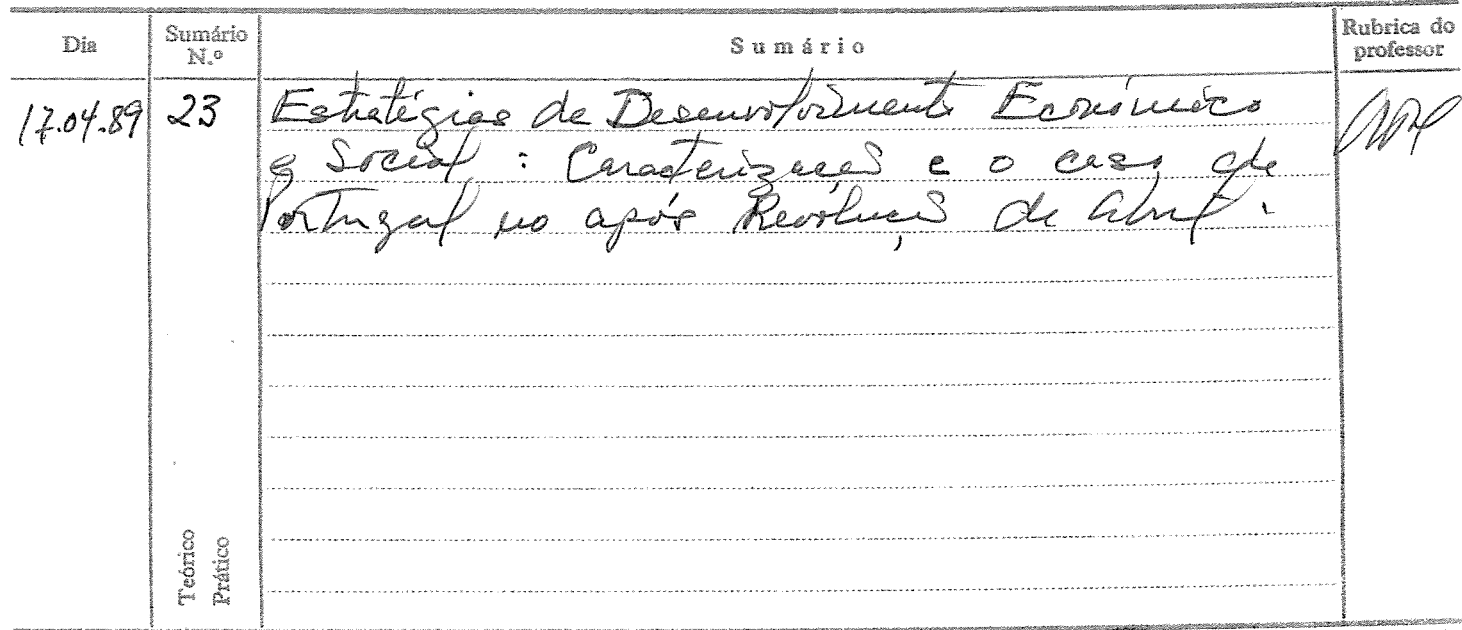 Dia
Sumário N.º
Sumário
Rubrica do professor
17.04.89
23
Estratégias de Desenvolvimento Económico
e Social : Caracterização e o caso de
Portugal no após Revolução de Abril.
Teórico
Prático